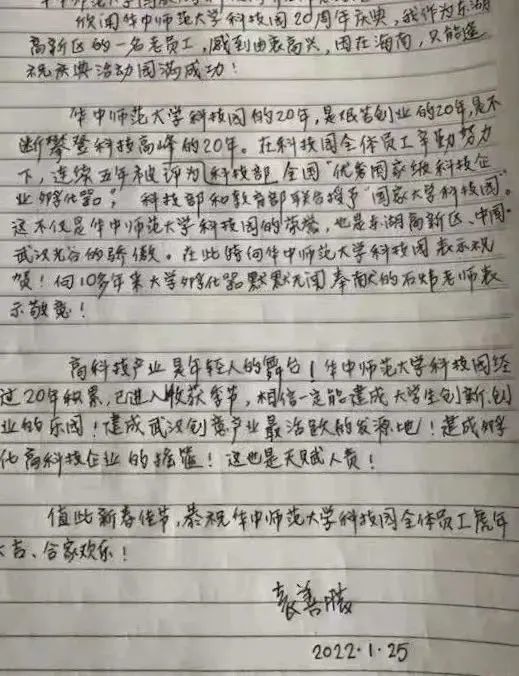 欣闻华中师范大学科技园20周年庆典，我作为东湖
高新区的一名老员工，感到由衷高兴，因在海南，只能遥
祝庆典活动圆满成功！
华中师范大学科技园的20年，是艰苦创业的20年，是不
断攀登科技高峰的20年。在科技园全体员工辛勤努力
下，连续五年被评为科技部全国“优秀国家级科技企
业孵化器”，科技部和教育部联合授予“国家大学科技园”。
这不仅是华中师范大学科技园的荣誉，也是东湖高新区、中国·
武汉光谷的骄傲。在此时向华中师范大学科技园表示祝
贺！向10多年来大学孵化器默默无闻奉献的石炜老师表
示敬意！
高科技产业是年轻人的舞台！华中师范大学科技园经
过20年积累，已进入收获季节，相信一定能建成大学生创新、创
业的乐园！建成武汉创意产业最活跃的发源地！建成孵
化高科技企业的摇篮！这也是天赋人责！
值此新春佳节，恭祝华中师范大学科技园全体员工虎年
大吉、合家欢乐！
袁善腊
2022·1·25